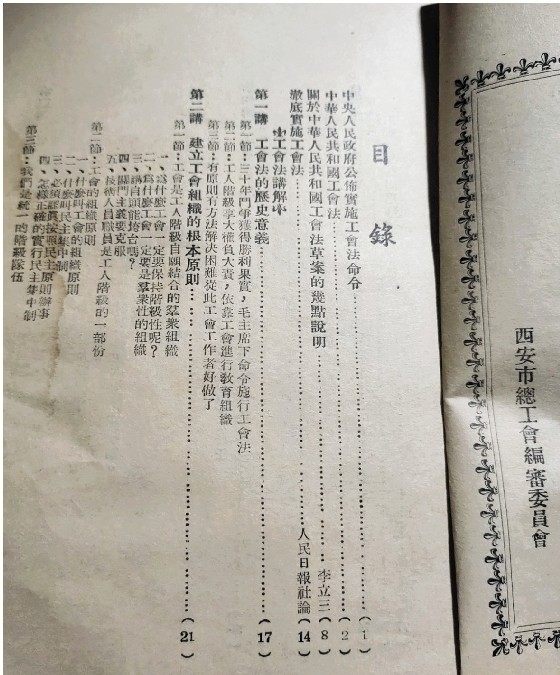 目錄
中央人民政府公佈實施工會法命令………(1)
中華人民共和國工會法………(2)
關於中華人民共和國工會法草案的幾點說明………李立三(8)
徹底實施工會法………人民日報社論(14)
工會法講解
第一講 工會法的歷史意義………(17)
第一節:三十年鬥爭獲得勝利果實,毛主席下命令施行工會法
第二節:工人階級享大權負大責,依靠工會進行敎育組織
第三節:有原則有方法解決困難從此工會工作者好做了
第二講 建立工會組織的根本原則………(21)
第一節:工會是工人階級自願結合的羣眾組織
一、爲什麼工會一定要保持階級性呢?
二、爲什麼工會一定要是羣衆性的組織
三、講自願能垮台嗎?
四、關門主義要克服
五、技術人員職員是工人階級的一部份
第二節:工會的組織原則
一、什麼叫工會的組織原則
二、什麼叫民主集中制
三、必須認眞按照民主原則辦事
四、怎樣正確的實行民主集中制
第三節:我們是統一的階級隊伍
西安市總工會編審委員會